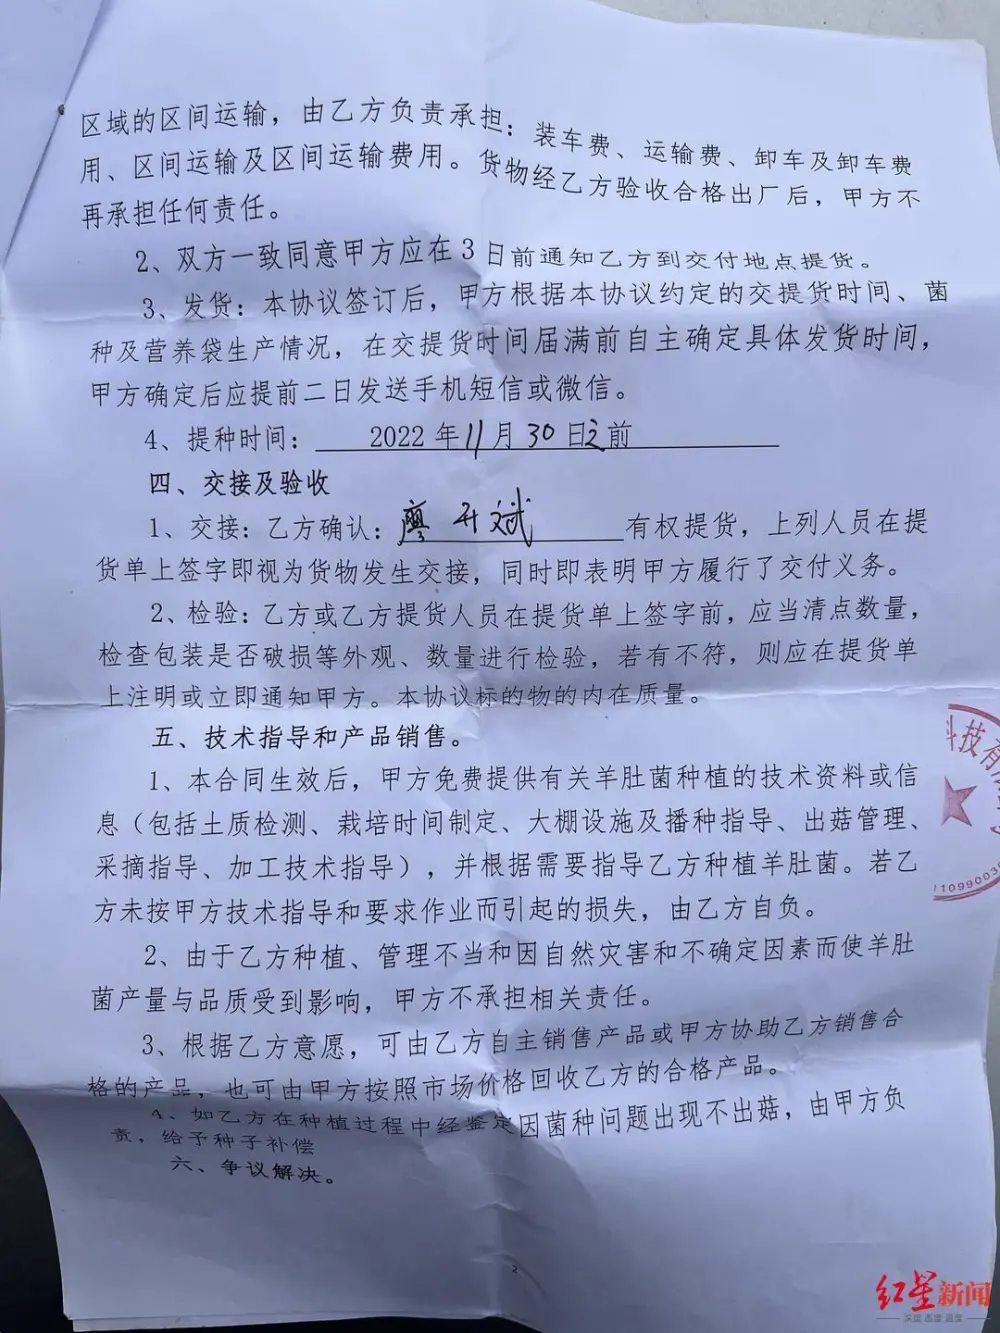 区域的区间运输，由乙方负责承担：装车费、运输费、卸车及卸车费
用、区间运输及区间运输费用。货物经乙方验收合格出厂后，甲方不
再承担任何责任。
2、双方一致同意甲方应在3日前通知乙方到交付地点提货。
3、发货：本协议签订后，甲方根据本协议约定的交提货时间、菌
种及营养袋生产情况，在交提货时间届满前自主确定具体发货时间，
甲方确定后应提前二日发送手机短信或微信。
4、提种时间：2022年11月30日之前
四、交接及验收
1、交接：乙方确认：廖升斌有权提货，上列人员在提
货单上签字即视为货物发生交接，同时即表明甲方履行了交付义务。
2、检验：乙方或乙方提货人员在提货单上签字前，应当清点数量，
检查包装是否破损等外观、数量进行检验，若有不符，则应在提货单
上注明或立即通知甲方。本协议标的物的内在质量。
五、技术指导和产品销售。
1、本合同生效后，甲方免费提供有关羊肚菌种植的技术资料或信
息（包括土质检测、栽培时间制定、大棚设施及播种指导、出菇管理、
采摘指导、加工技术指导），并根据需要指导乙方种植羊肚菌。若乙
方未按甲方技术指导和要求作业而引起的损失，由乙方自负。
2、由于乙方种植、管理不当和因自然灾害和不确定因素而使羊肚
菌产量与品质受到影响，甲方不承担相关责任。
3、根据乙方意愿，可由乙方自主销售产品或甲方协助乙方销售合
格的产品，也可由甲方按照市场价格回收乙方的合格产品。
4、如乙方在种植过程中经鉴定因菌种问题出现不出菇，由甲方负
责，给予种子补偿
六、争议解决。
科技有
1109900
2
红星新闻